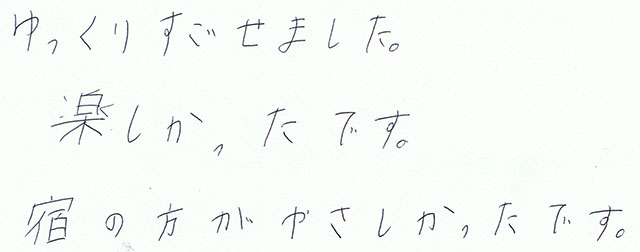 ゆっくりすごせました。
楽しかったです。
宿の方がやさしかったです。